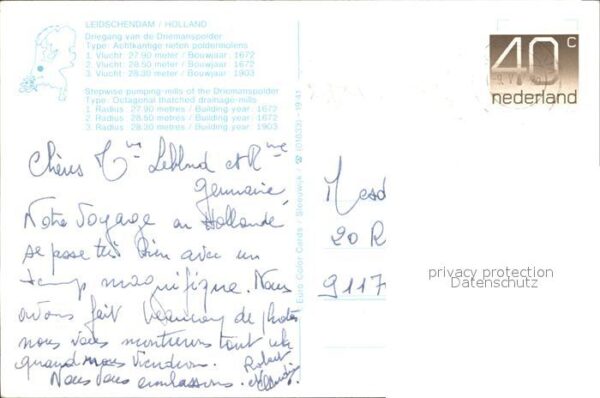 LEIDSCHENDAM / HOLLAND
Driegang van de Driemanspolder
Type: Achtkantige rieten poldermolens
1. Vlucht: 27.90 meter / Bouwjaar: 1672
2. Vlucht: 28.50 meter / Bouwjaar: 1672
3. Vlucht: 28.30 meter / Bouwjaar: 1903
Stepwise pumping-mills of the Driemanspolder
Type: Octagonal thatched drainage-mills
1 Radius: 27.90 metres / Building year: 1672
2 Radius: 28.50 metres / Building year: 1672
3 Radius: 28.30 metres / Building year: 1903
Chères Mme Leblud et Mme
Germaine
Notre Voyage en Hollande
se passe très bien avec un
temps magnifique. Nous
avons fait beaucoup de photos
nous vous montrerons tout cela
quand nous viendrons.
Nous vous embrassons. Robert
Euro Color Cards / Sleeuwijk /
40 c
nederland
Mesd
20 R
9117
privacy protection
Datenschutz